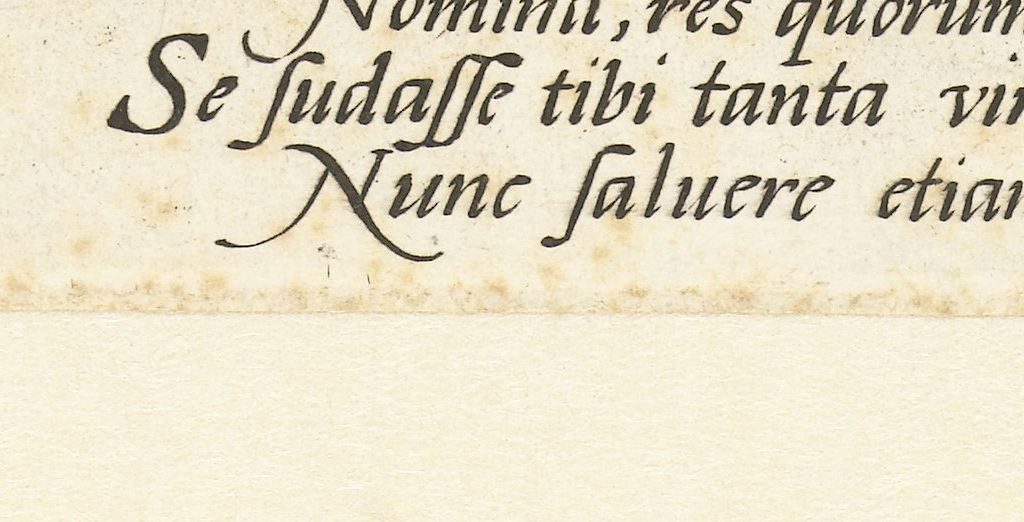 Nomina, res quorum
Se ſudaſſe tibi tanta
Nunc ſaluere